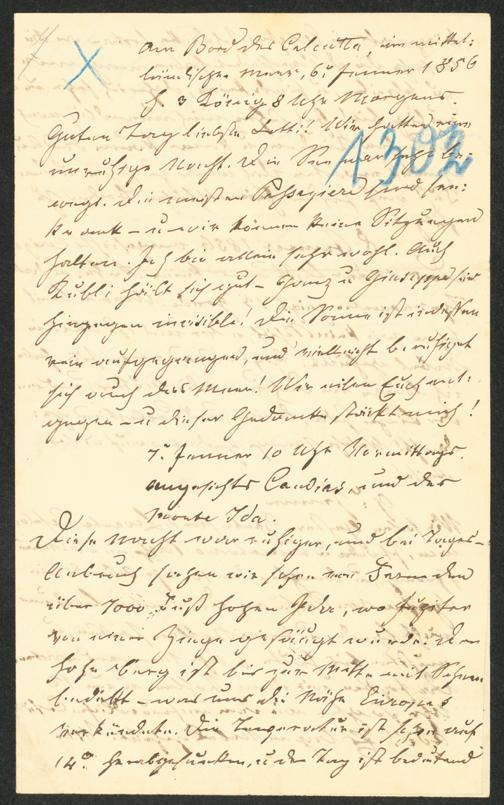 Am Bord des Calcutta, im mittel:
ländischen Meer, 6t Jenner 1856
h. 3 König 8 Uhr Morgens.
1302
Guten Tag liebste Betti! Wir hatten eine
unruhige Nacht. Die See war sehr be:
wegt. Die meisten Passagiere sind see:
krank – u wir können keine Sitzungen
halten. Ich bin allein sehr wohl. Auch
Kubli hält sich gut – Ganz u Giuseppe sind
hingegen invisible! Die Sonne ist indessen
rein aufgegangen, und vielleicht beruhiget
sich auch das Meer! Wir eilen Euch ent:
gegen – u dieser Gedanke stärkt mich!
7t Jenner 10 Uhr Vormittags.
angesichts Candias und des
Monte Ida.
Diese Nacht war ruhiger, und bei Tages-
Anbruch sahen wir schon von Ferne den
über 7000 Fuß hohen Ida, wo Jupiter
von einer Ziege gesäugt wurde. Der
hohe Berg ist bis zur Mitte mit Schnee
bedeckt – was uns die Nähe Europas
verkündete. Die Temperatur ist schon auf
14° herabgesunken, u der Tag ist bedeutend